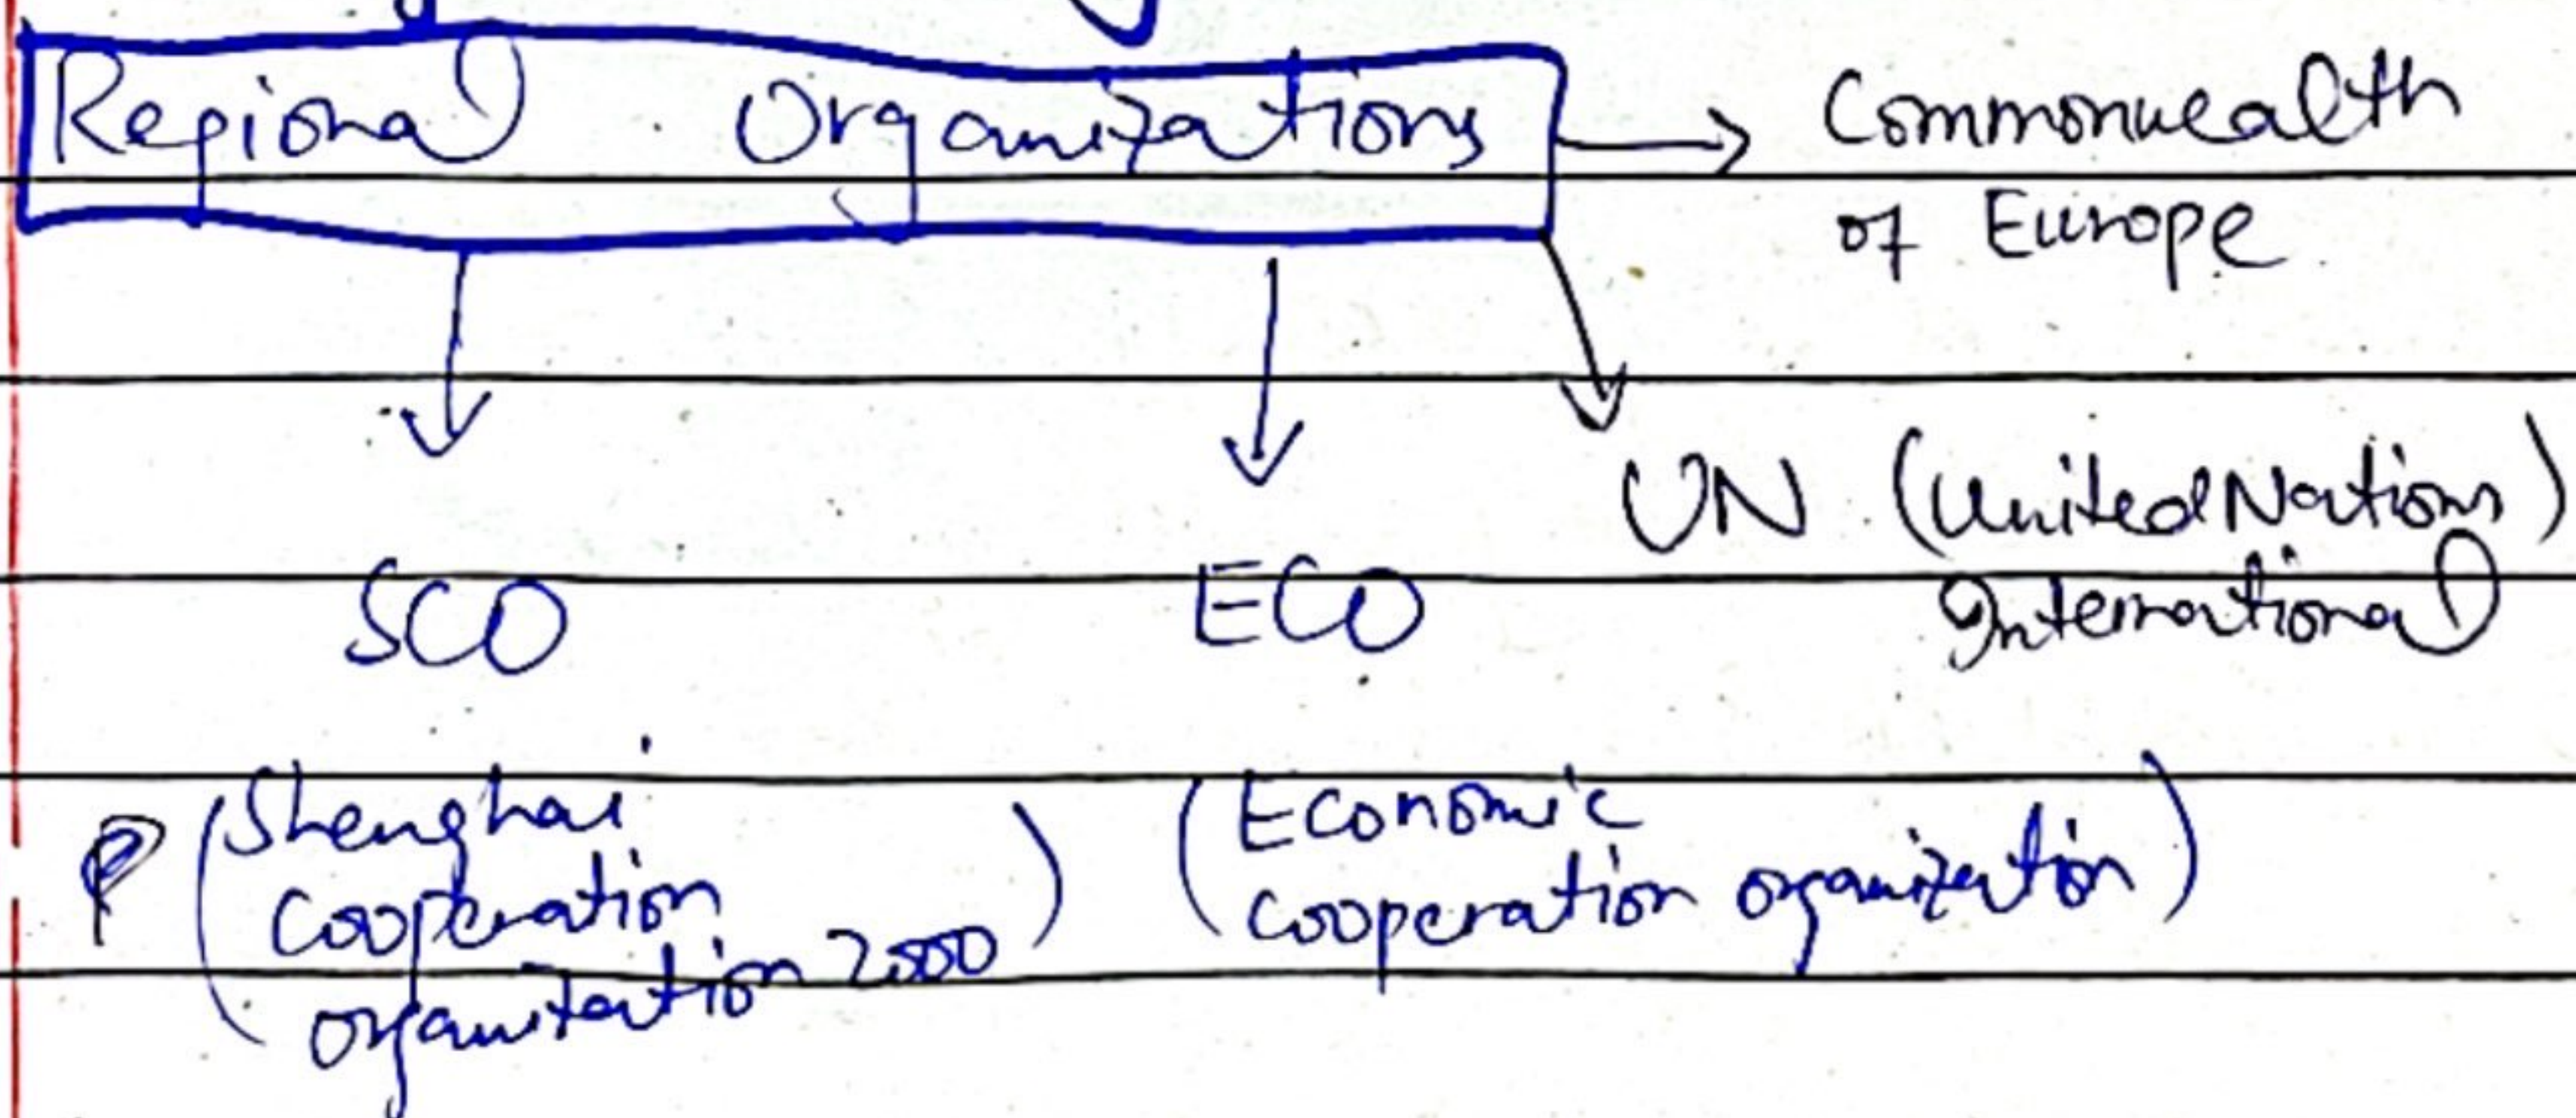 Regional Organizations → Commonwealth
of Europe
UN (United Nations)
International
SCO ECO
(Shenghai
Cooperation
organization 2000)
(Economic
cooperation organization)